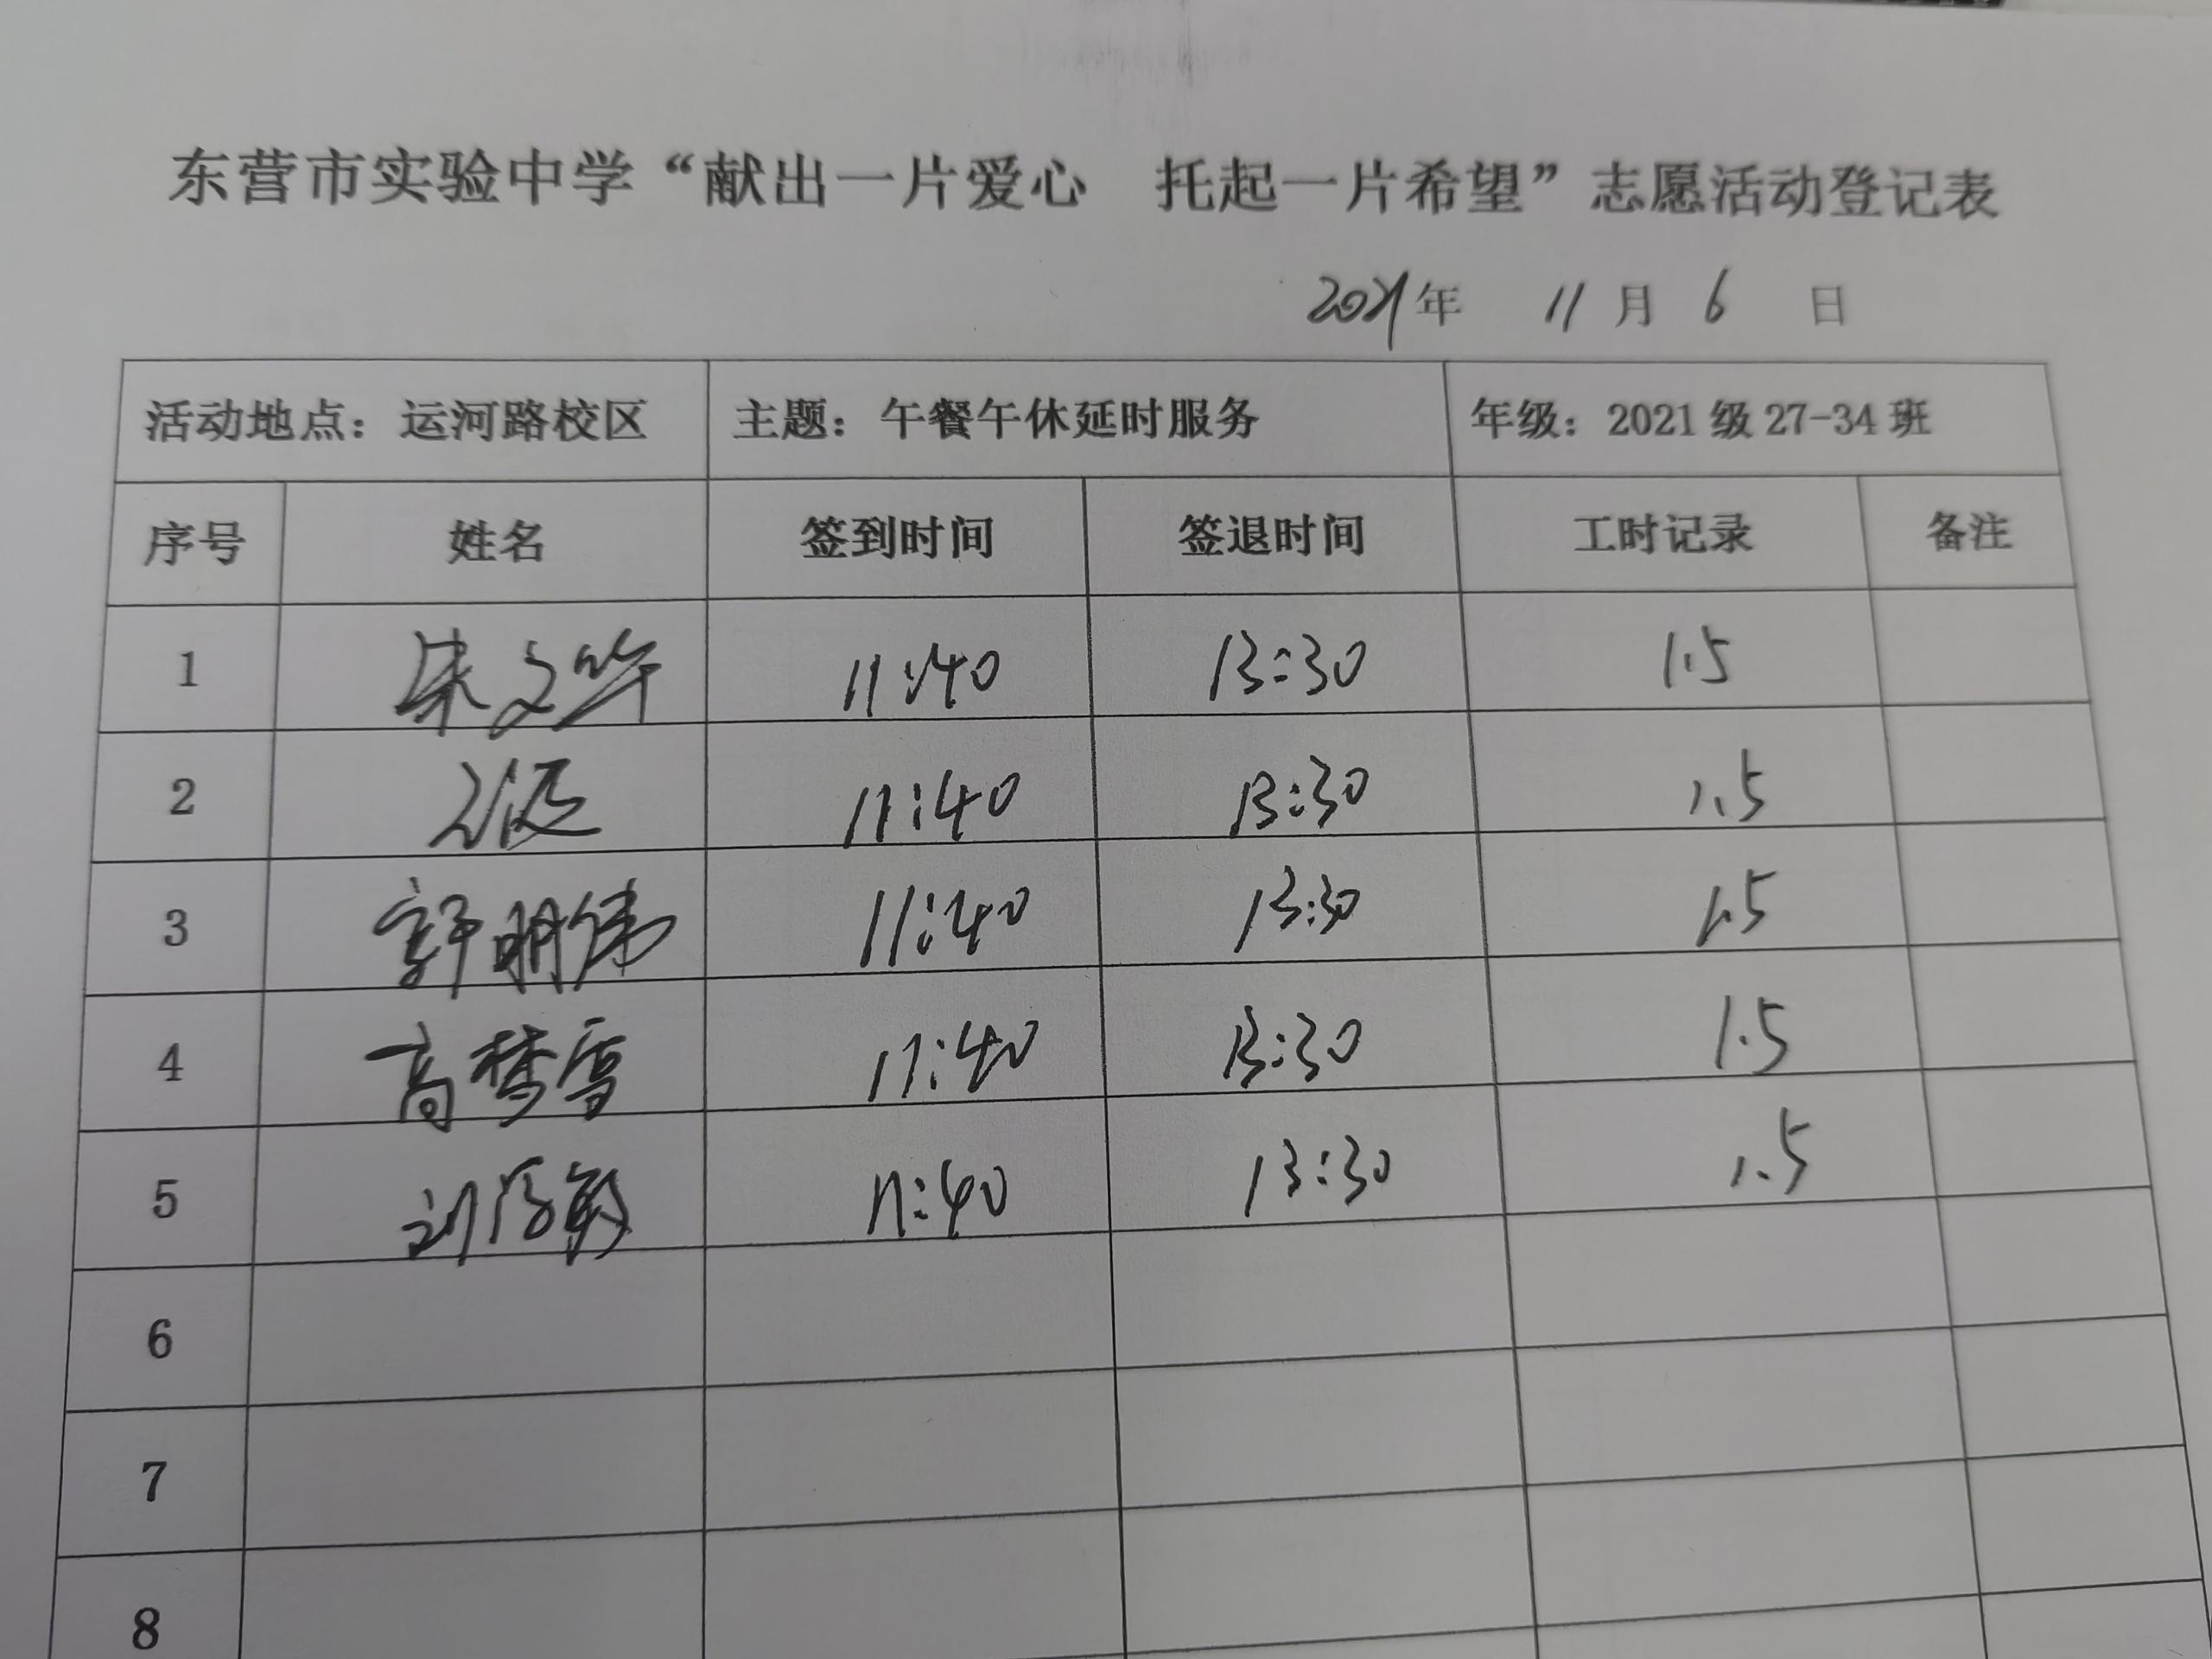 东营市实验中学“献出一片爱心　托起一片希望”志愿活动登记表
2021年 11月 6 日
活动地点：运河路校区 主题：午餐午休延时服务 年级：2021级27-34班
序号 姓名 签到时间 签退时间 工时记录 备注
1 11:40 13:30 1.5
2 11:40 13:30 1.5
3 明伟 11:40 13:30 1.5
4 高梦雪 11:40 13:30 1.5
5 刘 11:40 13:30 1.5
6
7
8